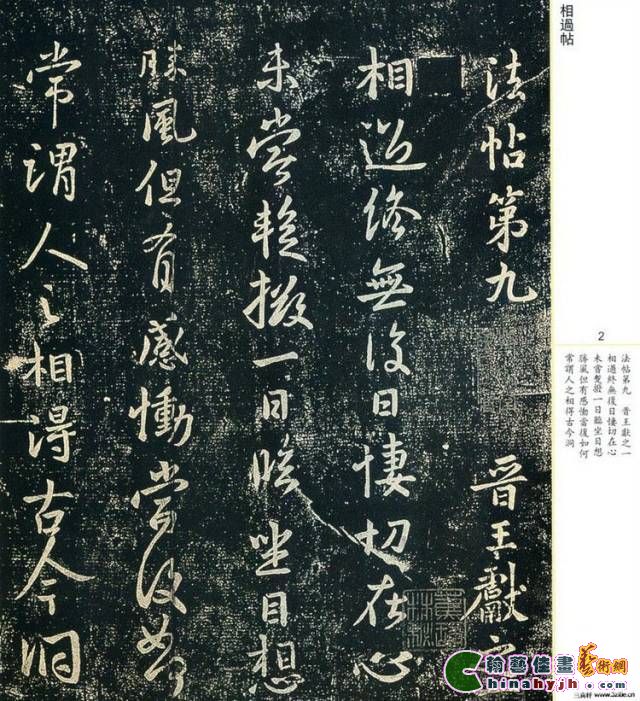 相過帖
法帖第九 晉王獻之
相過終無復日悽切在心
未嘗蹔撥一日臨坐目想
勝風但有感慟當復如何
常謂人之相得古今洞
2
法帖第九 晉王獻之一
相過終無復日悽切在心
未嘗蹔發一日臨坐目想
勝風但有感慟當復如何
常謂人之相得古今洞
翰藝佳畫藝術網
Chinahyjh.com